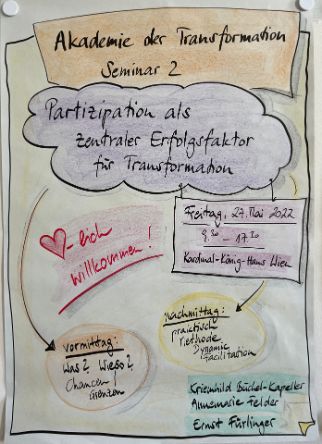 Akademie der Transformation
Seminar 2
Partizipation als
zentraler Erfolgsfaktor
für Transformation
Freitag, 27. Mai 2022
9.30 – 17.30
Kardinal-König-Haus Wien
♥-lich
willkommen!
Vormittag:
Was? Wieso?
Chancen
Grenzen
Nachmittag:
praktisch
Methode
Dynamic
Facilitation
Kriemhild Büchel-Kapeller
Annemarie Felder
Ernst Fürlinger